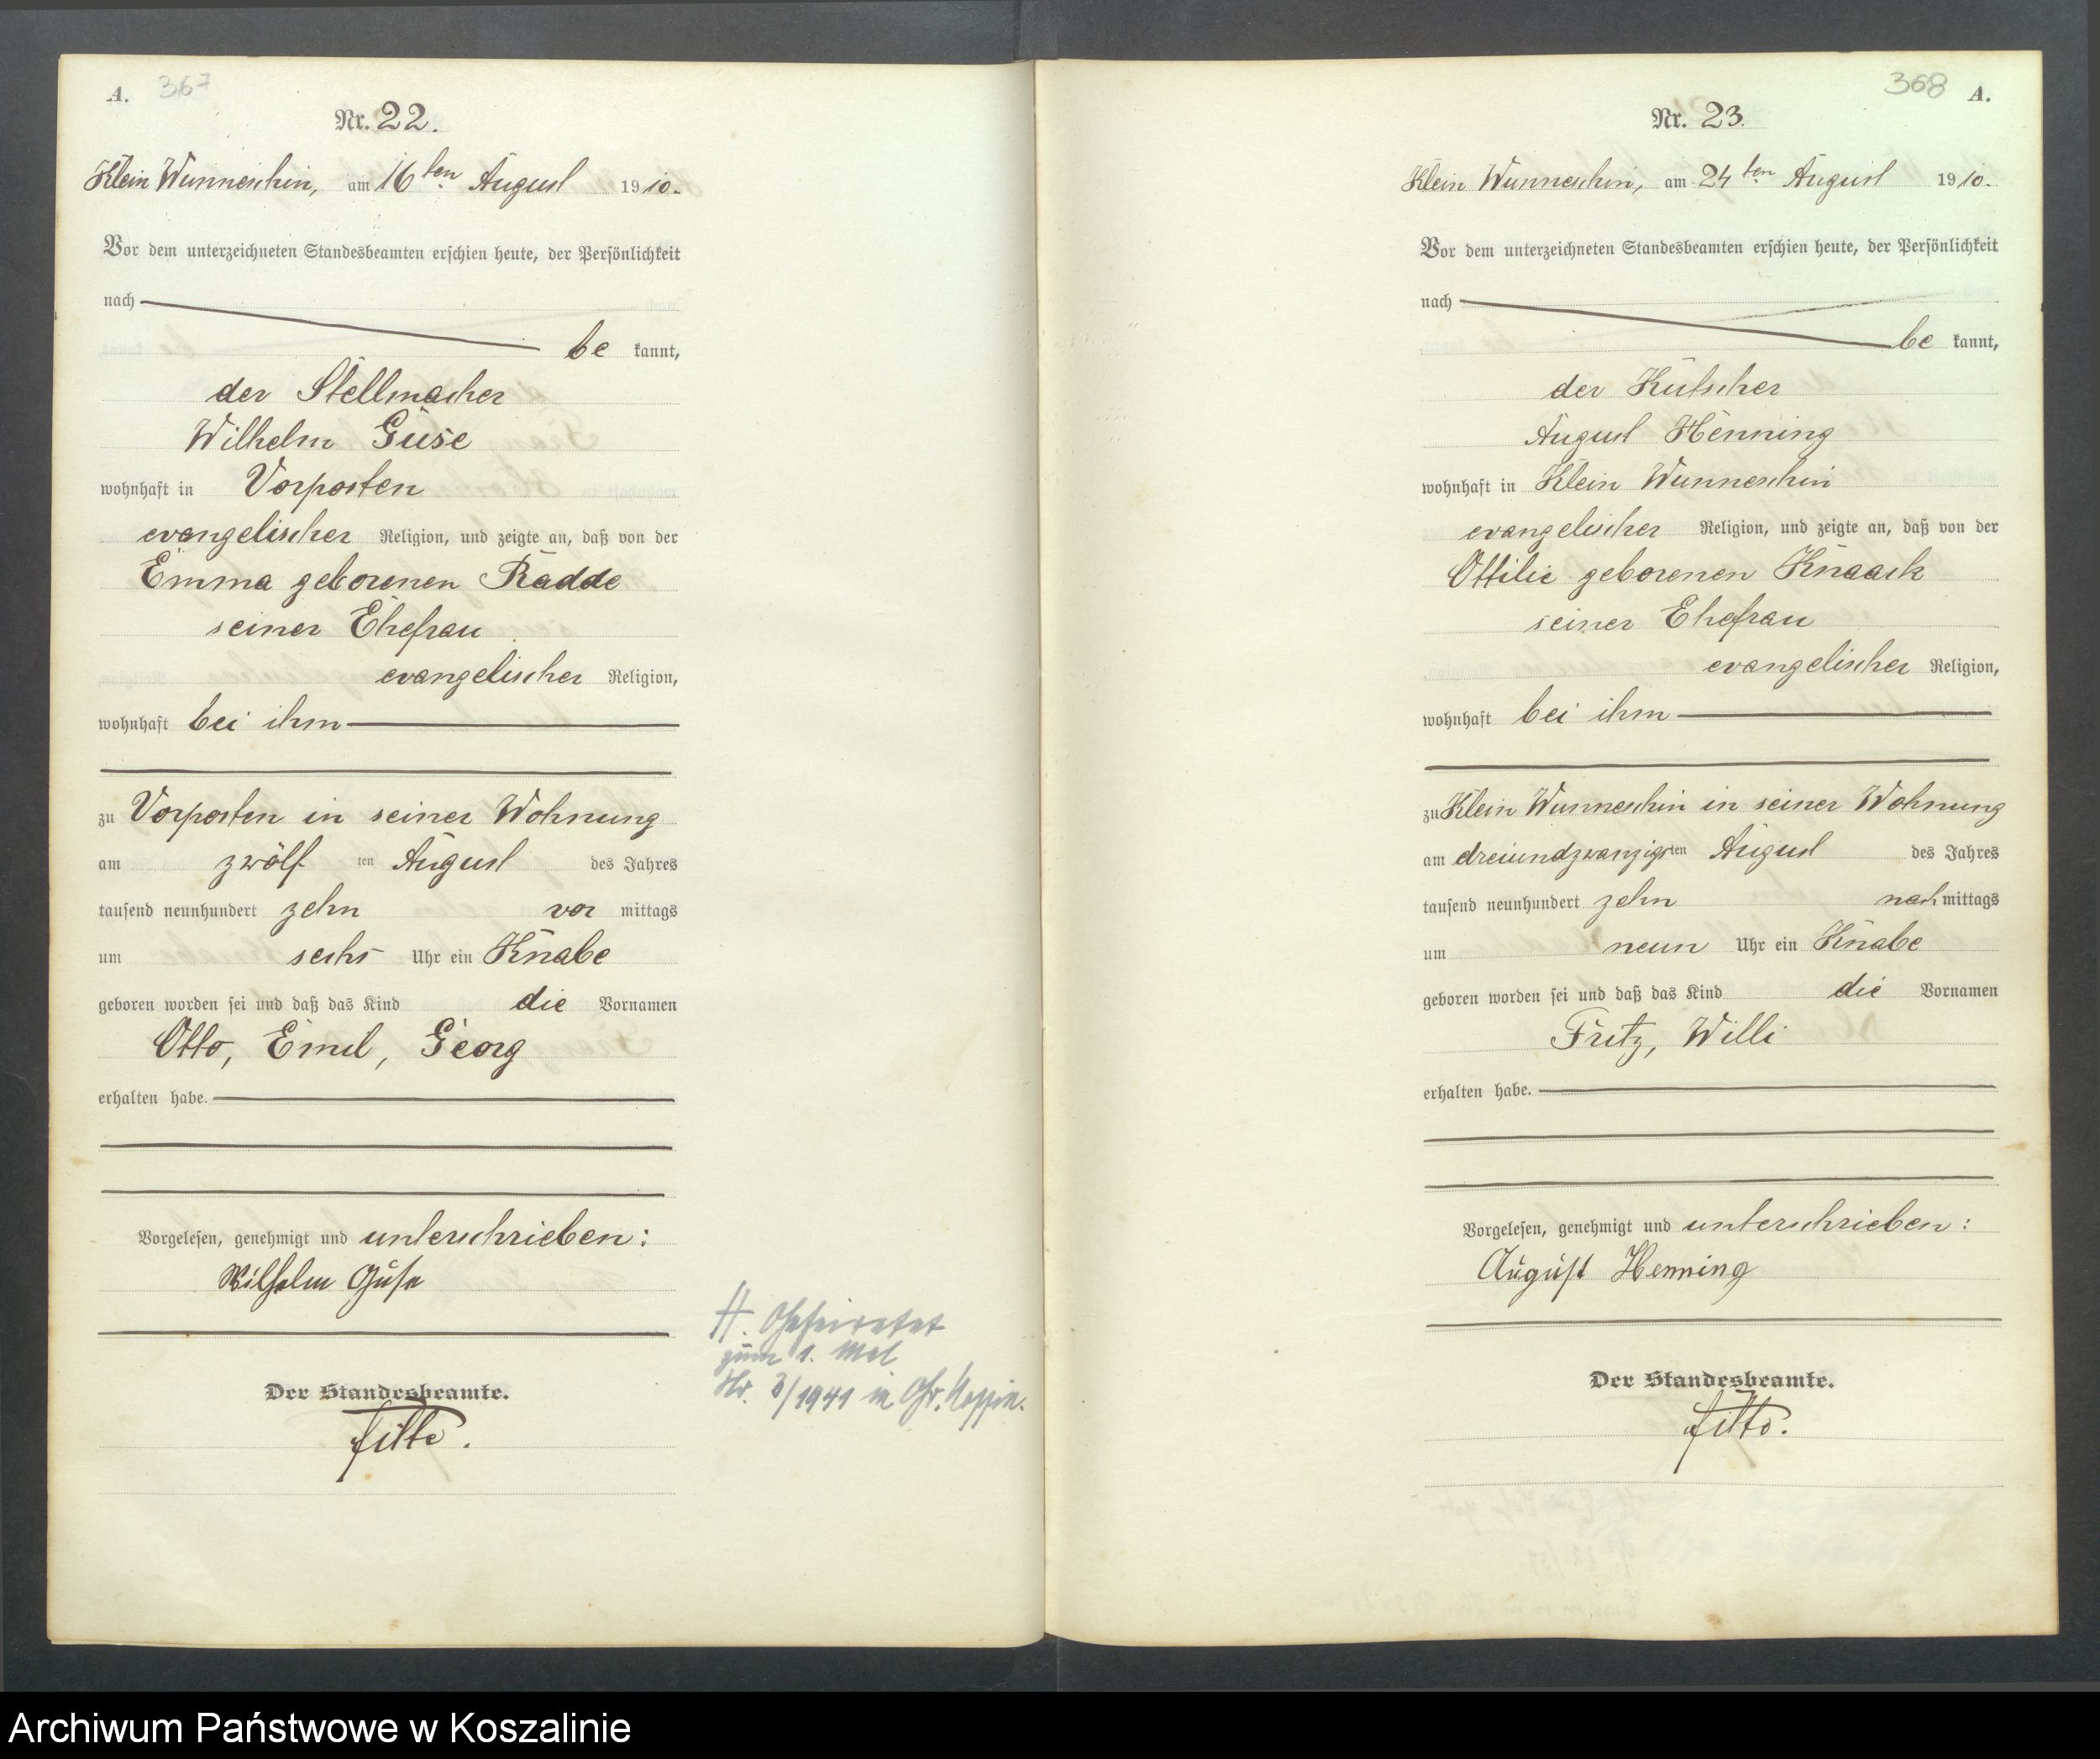 A. 367
Nr. 22.
Klein Wunneschin, am 16ten August 1910.
Vor dem unterzeichneten Standesbeamten erschien heute, der Persönlichkeit
nach
be kannt,
der Stellmacher
Wilhelm Guse
wohnhaft in Vorposten
evangelischer Religion, und zeigte an, daß von der
Emma geborenen Radde
seiner Ehefrau
evangelischer Religion,
wohnhaft bei ihm
zu Vorposten in seiner Wohnung
am zwölf ten August des Jahres
tausend neunhundert zehn vor mittags
um sechs Uhr ein Knabe
geboren worden sei und daß das Kind die Vornamen
Otto, Emil, Georg
erhalten habe.
Vorgelesen, genehmigt und unterschrieben:
Wilhelm Guse
H. Geheiratet
zum 1. Mal
Nr. 3/1941 in Gr.
Der Standesbeamte.
368 A.
Nr. 23.
Klein Wunneschin, am 24ten August 1910.
Vor dem unterzeichneten Standesbeamten erschien heute, der Persönlichkeit
nach
be kannt,
der Kutscher
August Henning
wohnhaft in Klein Wunneschin
evangelischer Religion, und zeigte an, daß von der
Ottilie geborenen Knaack
seiner Ehefrau
evangelischer Religion,
wohnhaft bei ihm
zu Klein Wunneschin in seiner Wohnung
am dreiundzwanzigsten August des Jahres
tausend neunhundert zehn nach mittags
um neun Uhr ein Knabe
geboren worden sei und daß das Kind die Vornamen
Fritz, Willi
erhalten habe.
Vorgelesen, genehmigt und unterschrieben:
August Henning
Der Standesbeamte.
Archiwum Państwowe w Koszalinie